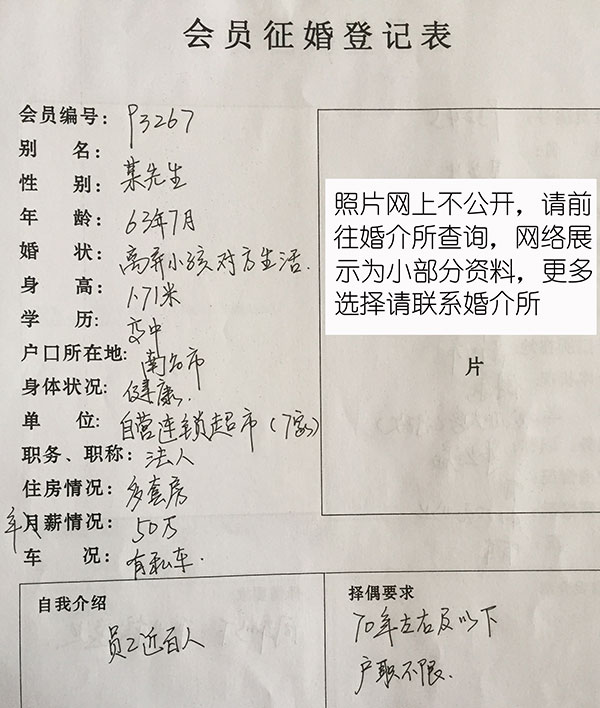 会员征婚登记表
会员编号：P3267
别 名：
性 别：某先生
年 龄：63年7月
婚 状：离异小孩对方生活.
身 高：1.71米
学 历：高中
户口所在地：南名市
身体状况：健康.
单 位：自营连锁超市（7家）
职务、职称：法人
住房情况：多套房
年月薪情况：50万
车 况：有私车.
照片网上不公开，请前
往婚介所查询，网络展
示为小部分资料，更多
选择请联系婚介所
片
自我介绍
员工近百人
择偶要求
70年左右及以下
户职不限.